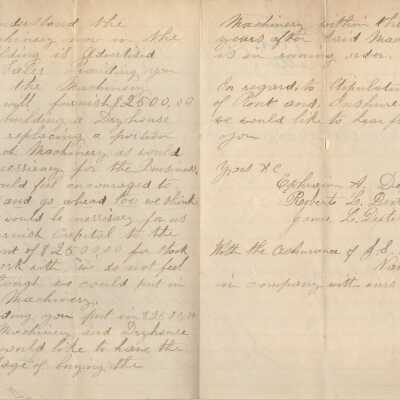 the
chinery now in the
lding is Advertised
Sale. Providing you
the Machinery
will furnish $2500,00
building a Dryhouse
replacing a portion
Machinery as would
necessary for the Business
uld feel encouraged to
and go ahead too we think
would be necessary for us
urnish Capital to the
nt of $2500,00 for Stock
ork with. We do not feel
though we could put in
Machinery.
ding you put in $2500,00
Machinery and Dryhouse
would like to have the
lage of buying the
Machinery within the
years after Said Mac
is in running order.
In regard to Stipulati
of Rent and Insura
we would like to hear f
you
Yours &C
Ephraim A. De
Roberto L.
James L. Dexte
With the Assurance of J. E.
in company with ours